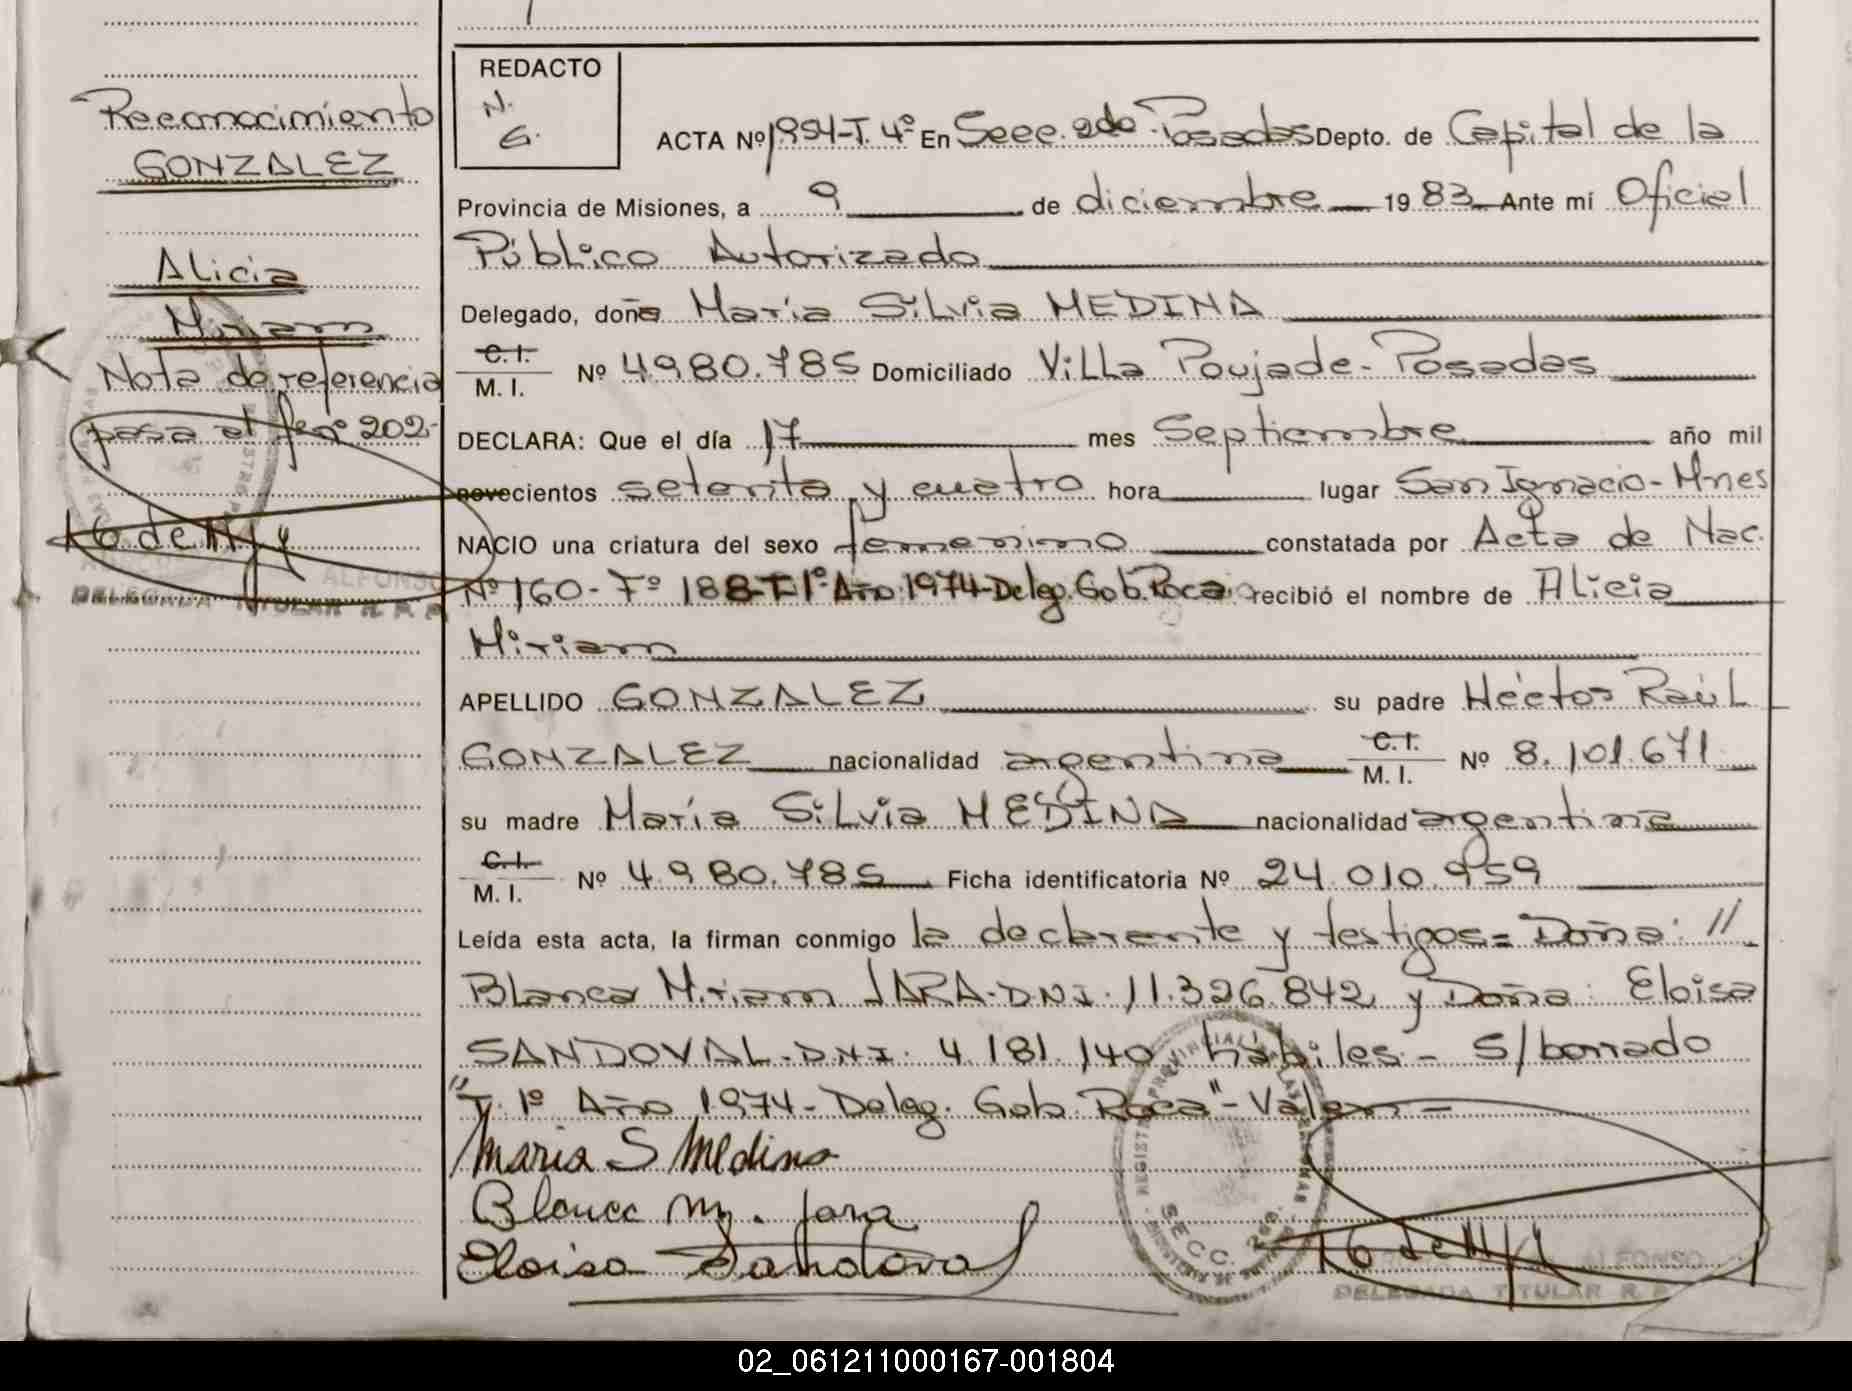 Reconocimiento
GONZALEZ
Alicia
Miriam
Nota de referencia
pasa al fº nº 202-
REDACTO
N.
G.
ACTA Nº 1954-T. 4º En Secc. 2da. Posadas Depto. de Capital de la
Provincia de Misiones, a 9 de diciembre 19 83 Ante mí Oficial
Público Autorizado
Delegado, doña María Silvia MEDINA
C.I. / M. I. Nº 4.980.785 Domiciliado Villa Poujade-Posadas
DECLARA: Que el día 17 mes Septiembre año mil
novecientos setenta y cuatro hora lugar San Ignacio-Mnes
NACIO una criatura del sexo femenino constatada por Acta de Nac.
Nº 160- Fº 188-T.1º-Año 1974-Deleg. Gob. Roca recibió el nombre de Alicia
Miriam
APELLIDO GONZALEZ su padre Héctor Raúl
GONZALEZ nacionalidad argentina C.I. / M. I. Nº 8.101.671
su madre María Silvia MEDINA nacionalidad argentina
C.I. / M. I. Nº 4.980.785 Ficha identificatoria Nº 24.010.959
Leída esta acta, la firman conmigo la declarante y testigos= Doña: //
Blanca Miriam JARA-D.N.I. 11.326.842 y Doña: Eloisa
SANDOVAL-D.N.I. 4.181.140 hábiles- S/borrado
"T. 1º Año 1974-Deleg. Gob. Roca"-Valen-
Maria S Medina
Blanca M. Jara
Eloisa Sandoval
SECC. 2da.
ALFONSO
DELEGADA TITULAR R. P.
ALFONSO
DELEGADA TITULAR R. P.
02_061211000167-001804